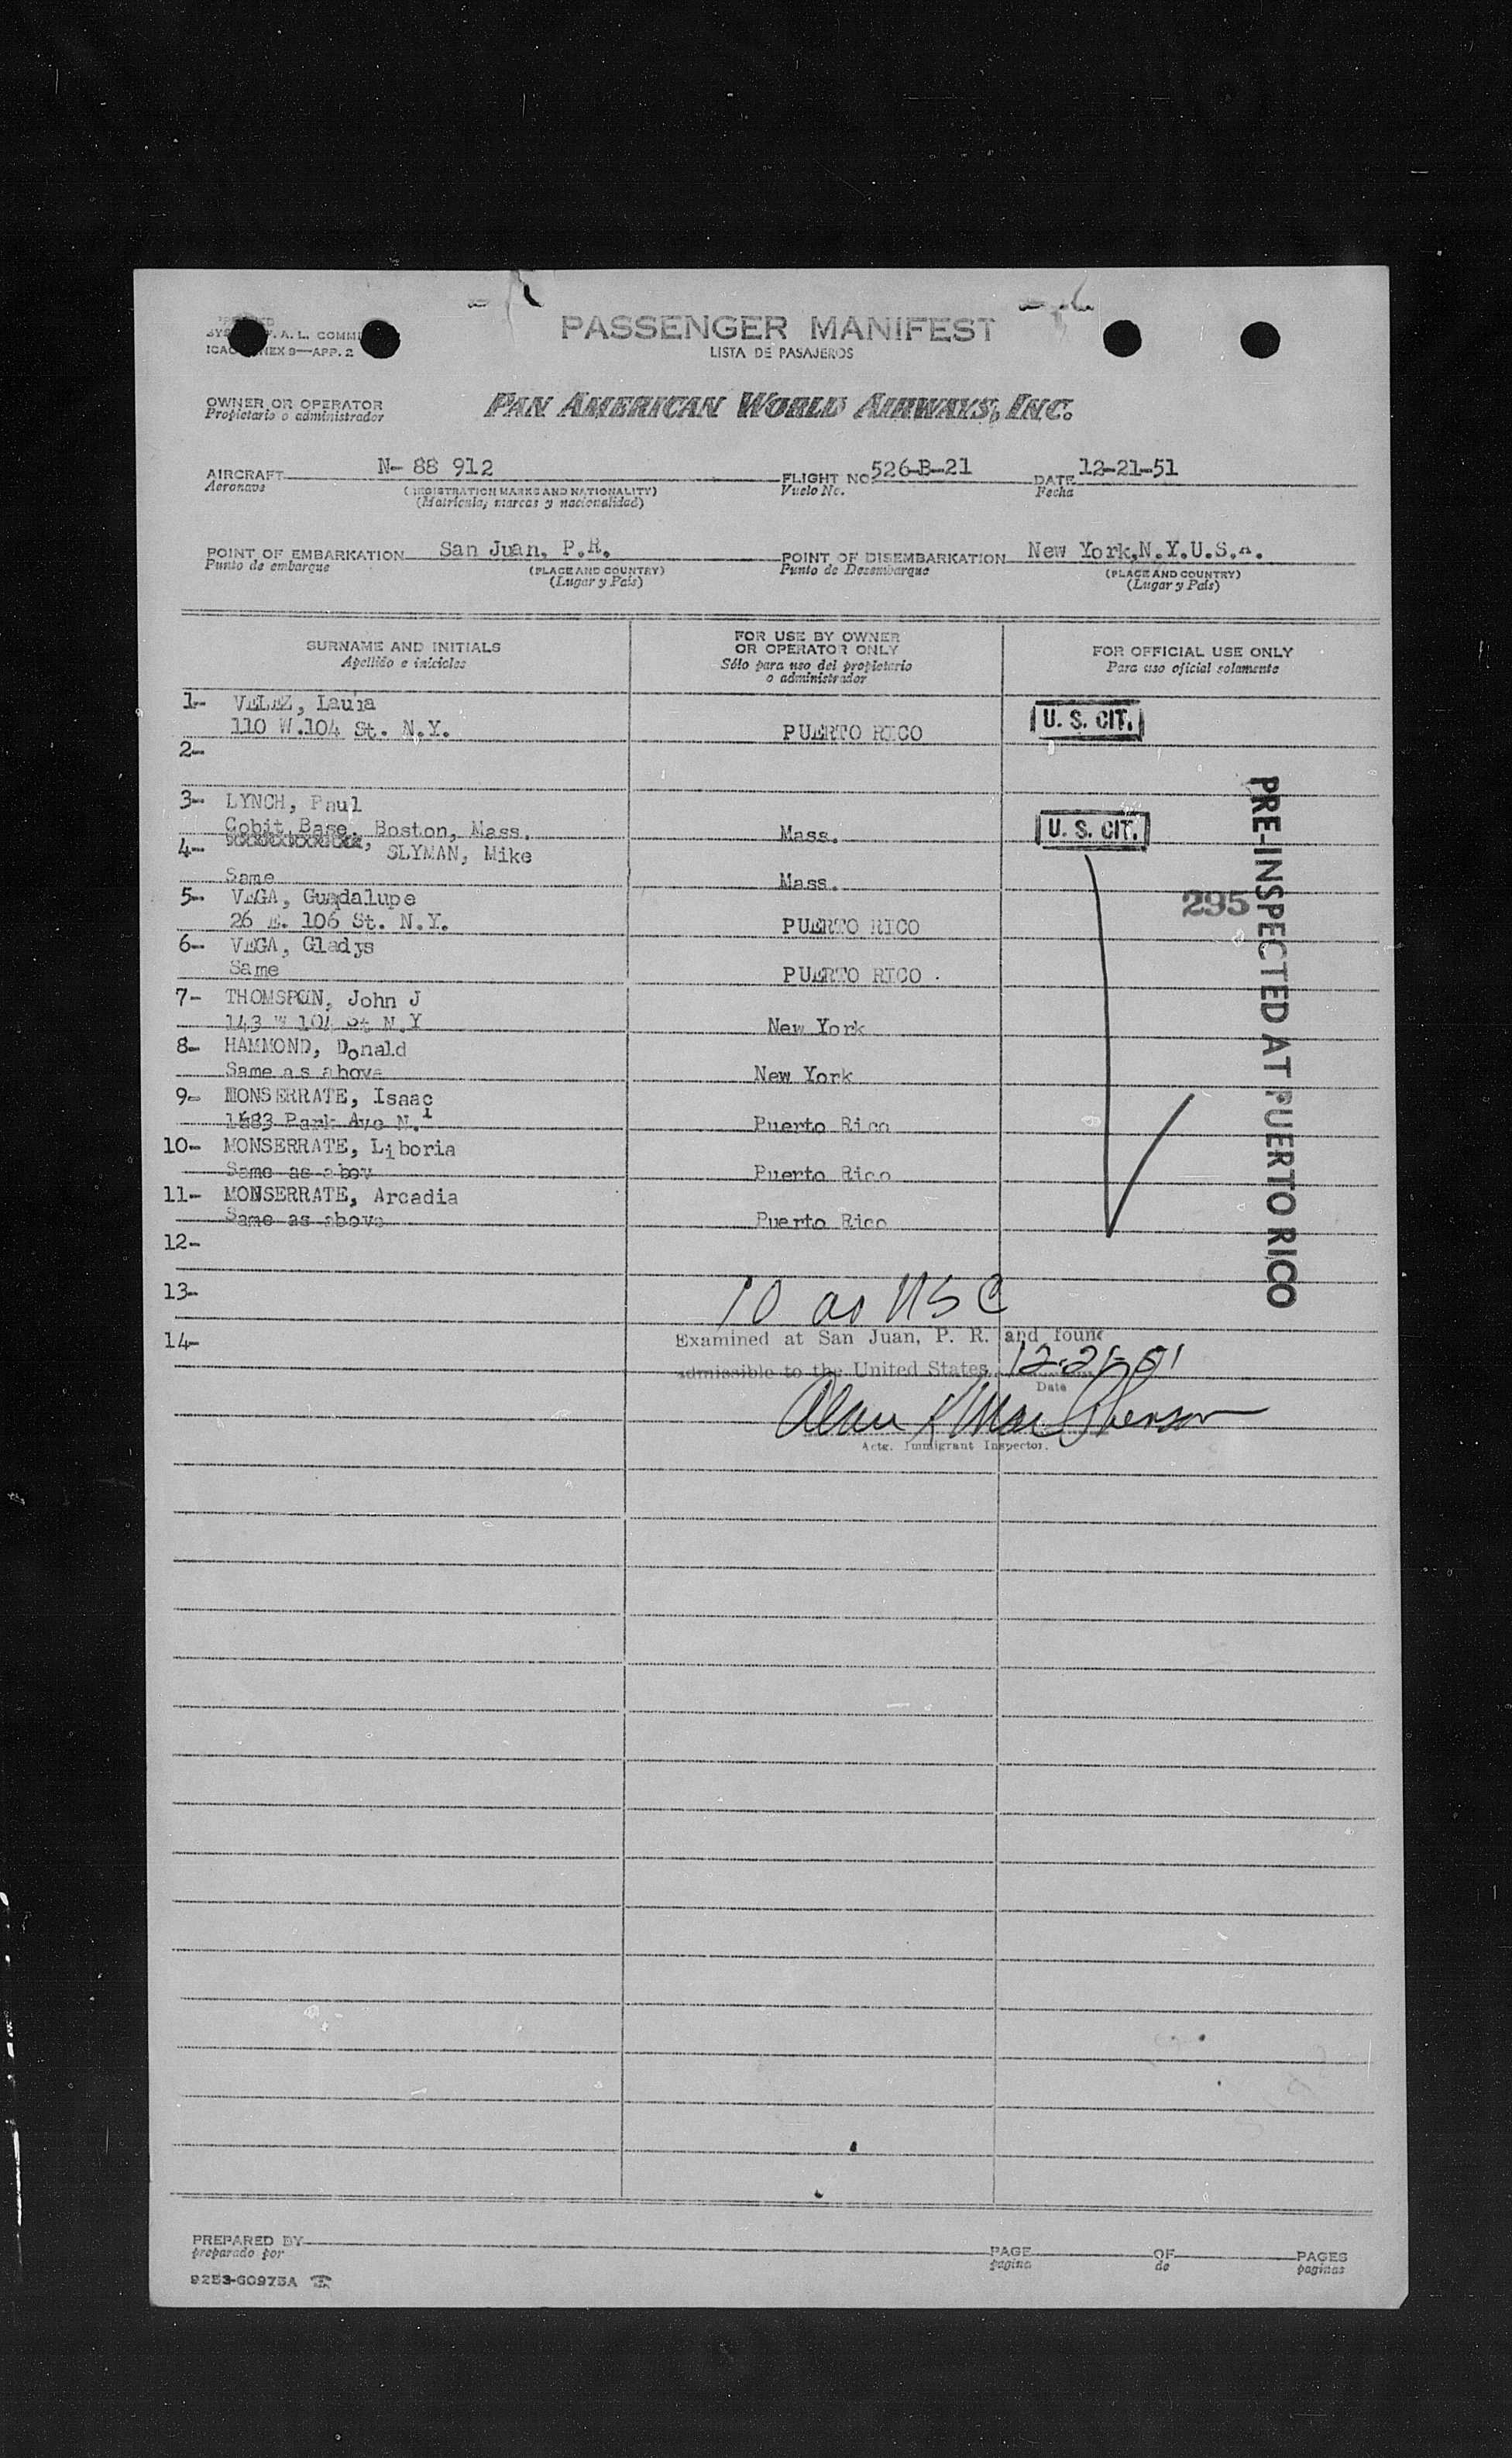 SYS A. L. COMMI
ICAO ANNEX 9—APP. 2
PASSENGER MANIFEST
LISTA DE PASAJEROS
OWNER OR OPERATOR
Propietario o administrador
PAN AMERICAN WORLD AIRWAYS, INC.
AIRCRAFT N- 88 912 FLIGHT NO. 526-B-21 DATE 12-21-51
Aeronave (REGISTRATION MARKS AND NATIONALITY) Vuelo No. Fecha
(Matrícula, marcas y nacionalidad)
POINT OF EMBARKATION San Juan, P.R. POINT OF DISEMBARKATION New York,N.Y.U.S.A.
Punto de embarque (PLACE AND COUNTRY) Punto de Desembarque (PLACE AND COUNTRY)
(Lugar y País) (Lugar y País)
SURNAME AND INITIALS FOR USE BY OWNER OR OPERATOR ONLY FOR OFFICIAL USE ONLY
Apellido e iniciales Sólo para uso del propietario o administrador Para uso oficial solamente
1- VELEZ, Lauia
110 W.104 St. N.Y. PUERTO RICO U. S. CIT.
2-
3- LYNCH, Paul
Cobit Base, Boston, Mass. Mass. U. S. CIT.
4- , SLYMAN, Mike
Same Mass.
5- VEGA, Guadalupe 295
26 E. 106 St. N.Y. PUERTO RICO
6- VEGA, Gladys
Same PUERTO RICO
7- THOMSPON, John J
143 W 104 St N.Y New York
8- HAMMOND, Donald
Same as above New York
9- MONSERRATE, Isaac
1683 Park Ave N.Y Puerto Rico
10- MONSERRATE, Liboria
Same as abov Puerto Rico
11- MONSERRATE, Arcadia
Same as above Puerto Rico
12-
13-
14-
PRE-INSPECTED AT PUERTO RICO
10 as USC
Examined at San Juan, P. R. and found
admissible to the United States. 12-21-51
Date
Actg. Immigrant Inspector.
PREPARED BY PAGE OF PAGES
preparado por pagina de paginas
9253-60975A